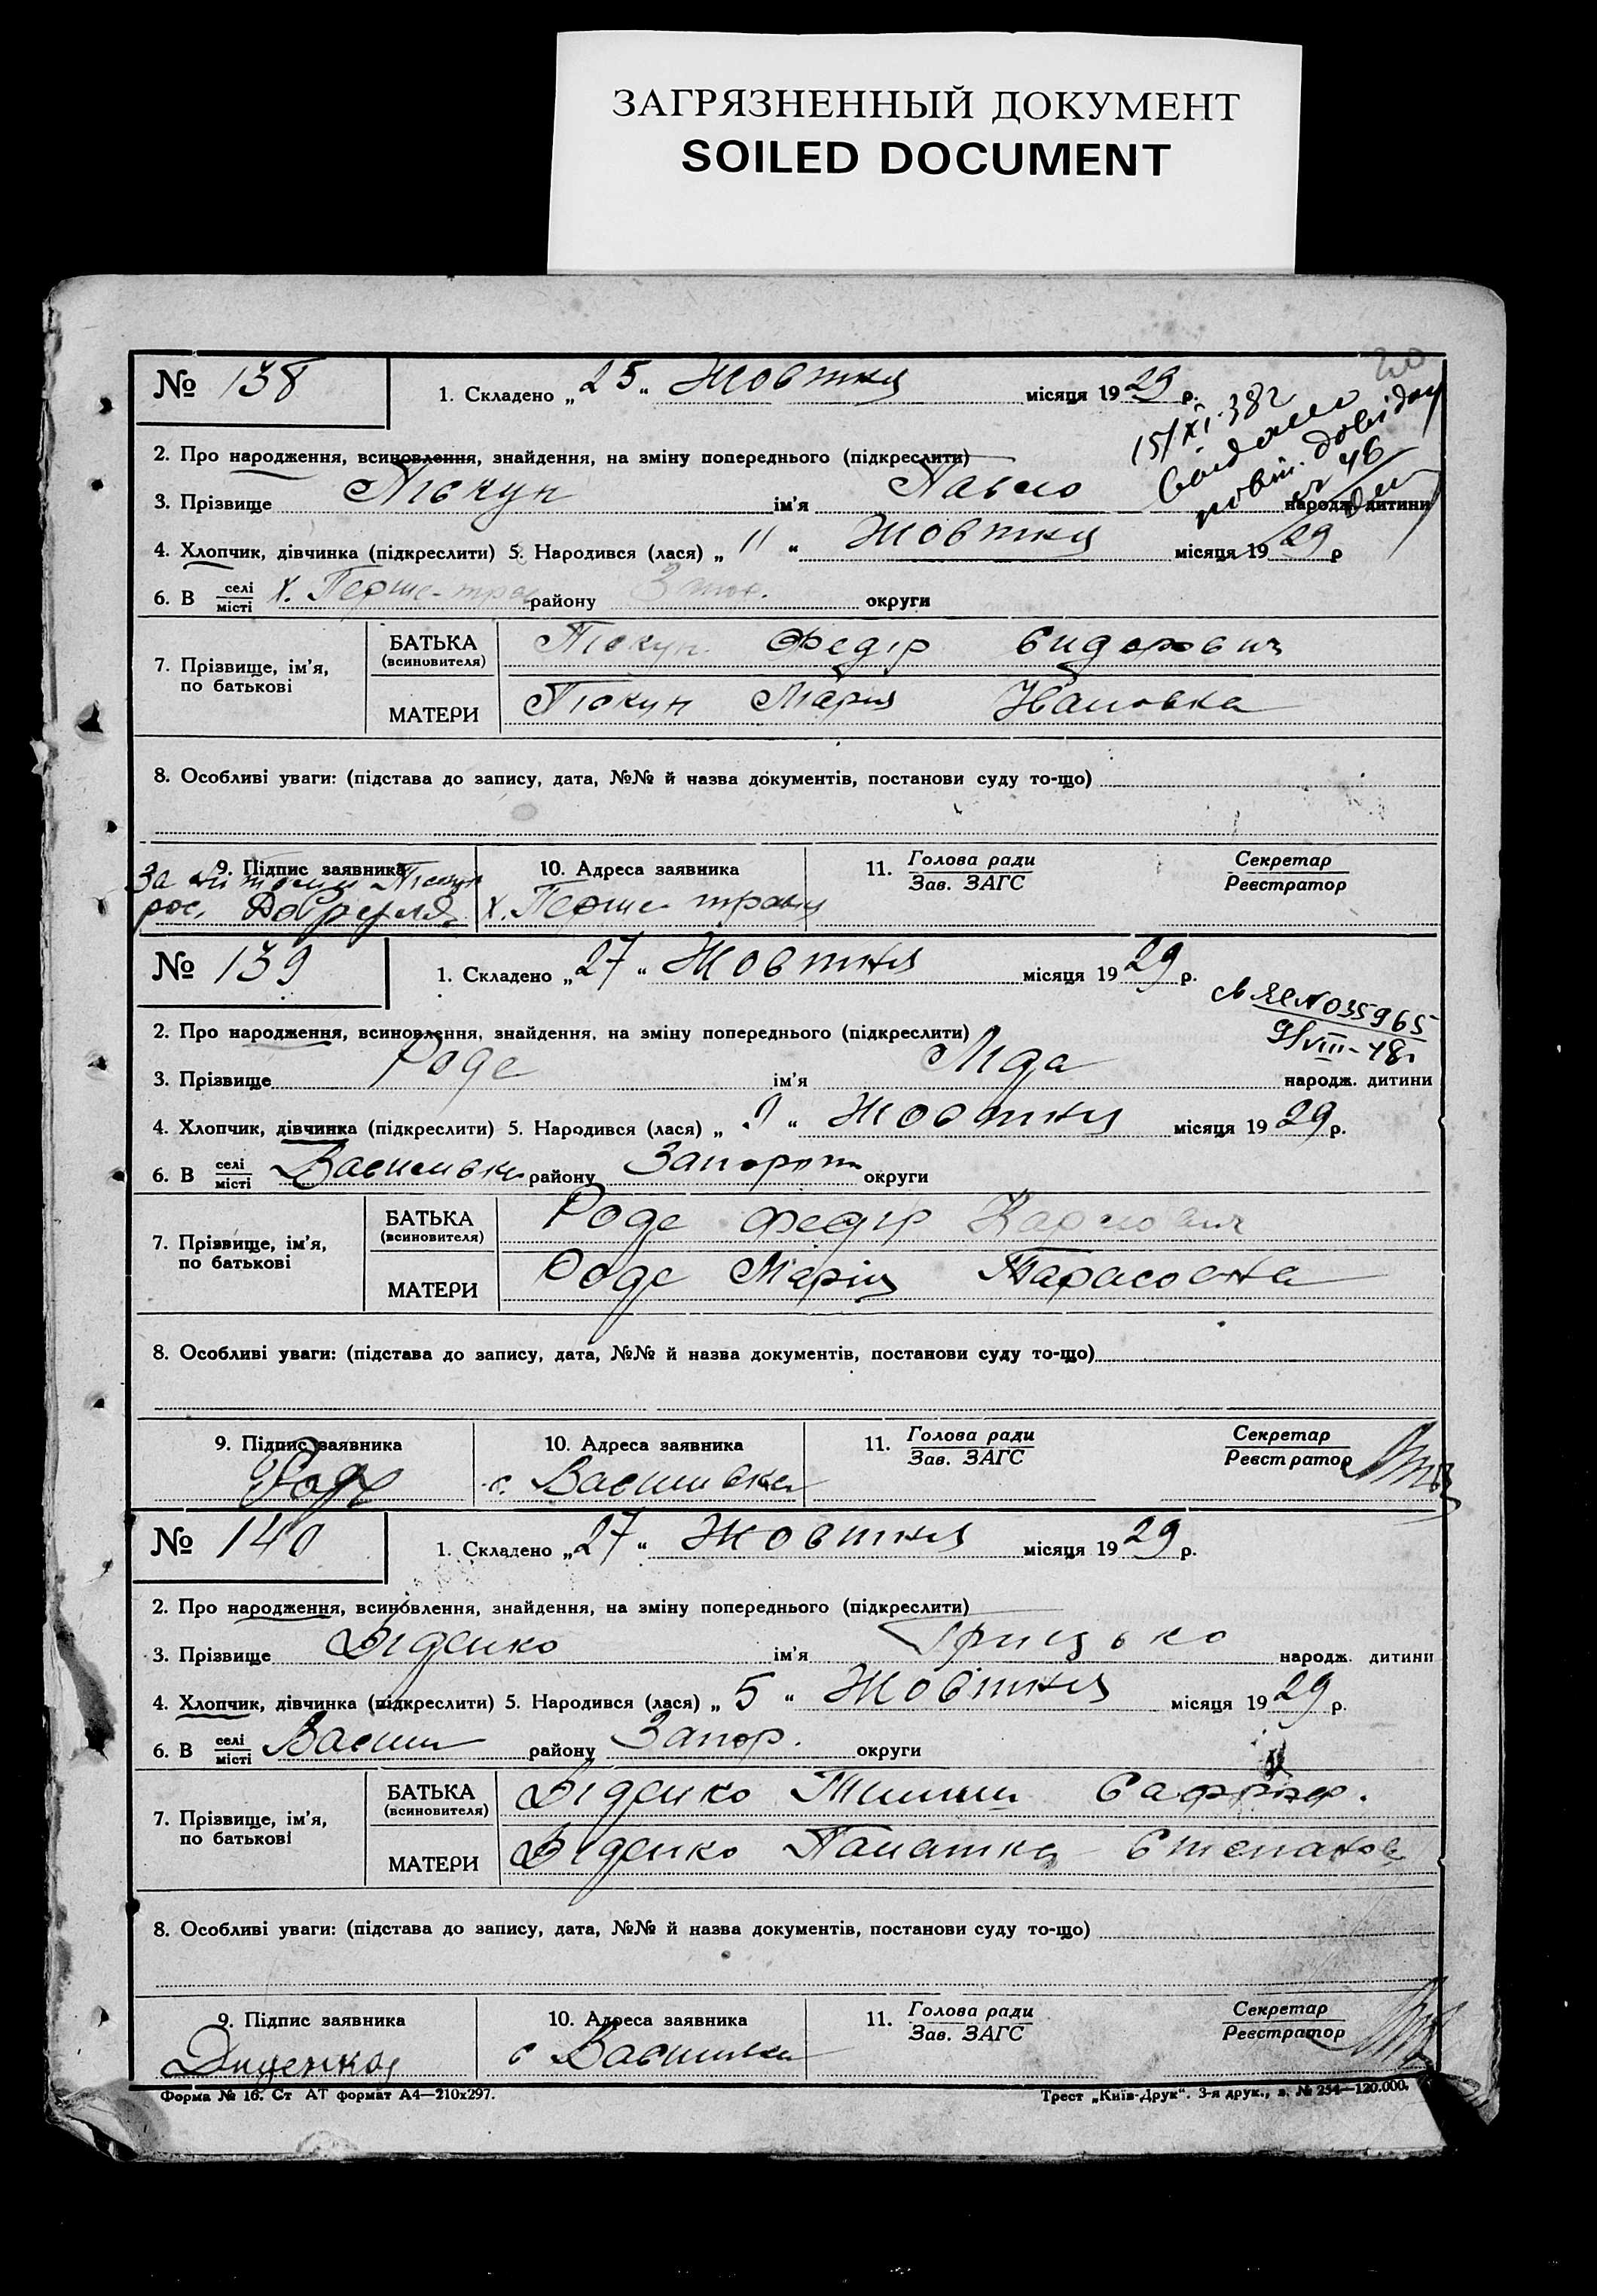 ЗАГРЯЗНЕННЫЙ ДОКУМЕНТ
SOILED DOCUMENT
20
№ 138
1. Складено „25“ Жовтня місяця 1929 р.
15/XI.38 г
2. Про народження, всиновлення, знайдення, на зміну попереднього (підкреслити)
3. Прізвище Тюкун ім’я Павло народж. дитини
4. Хлопчик, дівчинка (підкреслити) 5. Народився (лася) „11“ Жовтня місяця 1929 р
6. В селі місті х. Перше-трав району Запор. округи
7. Прізвище, ім’я, по батькові
БАТЬКА (всиновителя) Тюкун Федір Сидорович
МАТЕРИ Тюкун Марія
8. Особливі уваги: (підстава до запису, дата, №№ й назва документів, постанови суду то-що)
9. Підпис заявника
10. Адреса заявника
11. Голова ради Зав. ЗАГС
Секретар Реєстратор
За Тюкун
рос. х. Перше травня
№ 139
1. Складено „27“ Жовтня місяця 1929 р.
№035965
9/VIII-48г
2. Про народження, всиновлення, знайдення, на зміну попереднього (підкреслити)
3. Прізвище Роде ім’я Ліда народж. дитини
4. Хлопчик, дівчинка (підкреслити) 5. Народився (лася) „9“ Жовтня місяця 1929 р.
6. В селі місті Васильівка району Запорож округи
7. Прізвище, ім’я, по батькові
БАТЬКА (всиновителя) Роде Федір Карлович
МАТЕРИ Роде Марія Тарасовна
8. Особливі уваги: (підстава до запису, дата, №№ й назва документів, постанови суду то-що)
9. Підпис заявника
10. Адреса заявника
11. Голова ради Зав. ЗАГС
Секретар Реєстратор
Роде с. Василівка
№ 140
1. Складено „27“ Жовтня місяця 1929 р.
2. Про народження, всиновлення, знайдення, на зміну попереднього (підкреслити)
3. Прізвище Діденко ім’я Грицько народж. дитини
4. Хлопчик, дівчинка (підкреслити) 5. Народився (лася) „5“ Жовтня місяця 1929 р.
6. В селі місті Васил району Запор. округи
7. Прізвище, ім’я, по батькові
БАТЬКА (всиновителя) Діденко
МАТЕРИ Діденко Степанов
8. Особливі уваги: (підстава до запису, дата, №№ й назва документів, постанови суду то-що)
9. Підпис заявника
10. Адреса заявника
11. Голова ради Зав. ЗАГС
Секретар Реєстратор
с Василівка
Форма № 16. Ст АТ формат А4—210х297.
Трест „Київ-Друк“. 3-я друк., з. № 254—120.000.